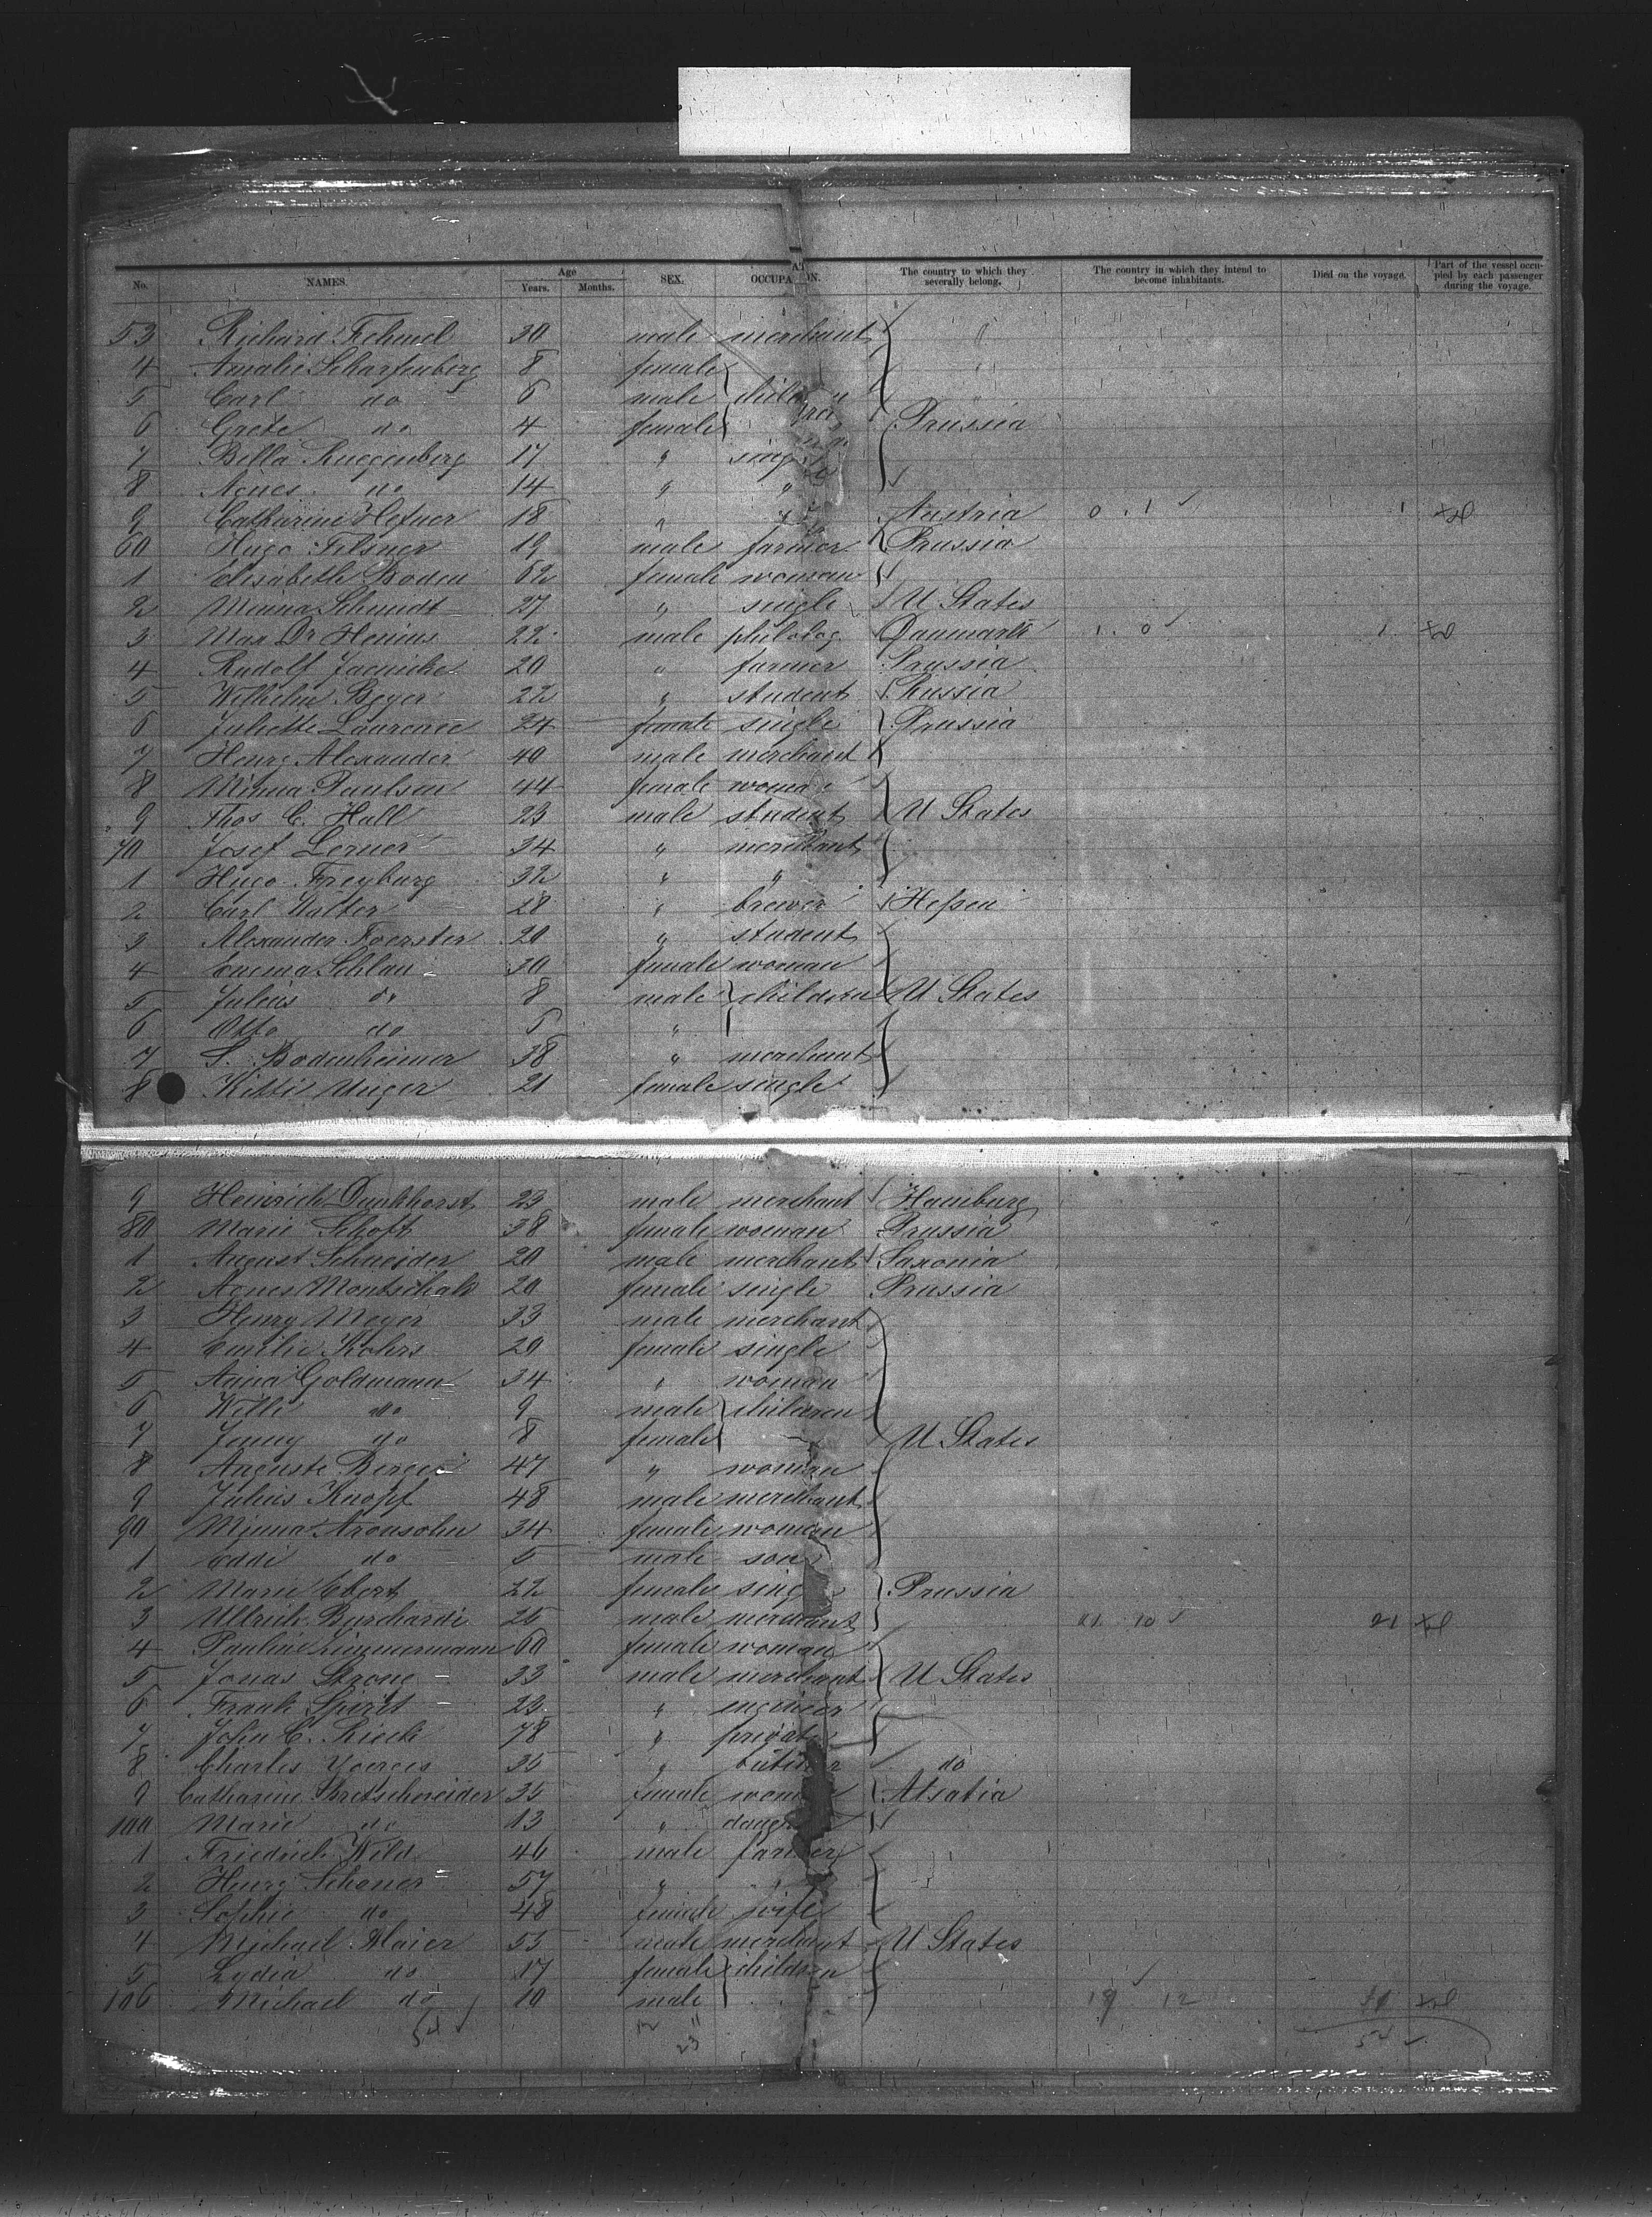 No. NAMES. Age Years. Months. SEX. OCCUPATION. The country to which they severally belong. The country in which they intend to become inhabitants. Died on the voyage. Part of the vessel occupied by each passenger during the voyage.
53 Richard 30 male merchant
4 Amalie Scharfenberg 8 female
5 Carl do 6 male children
6 Grete do 4 female Prussia
7 Bella Kuegenberg 17 " single
8 Agnes do 14 " "
9 Catharine Hefner 18 " " Austria 0 . 1 1
60 Hugo Filsner 19 male farmer Prussia
1 Elisabeth Boden 62 female woman
2 Minna Schmidt 27 " single U States
3 Max Dr Henius 22 male philolog. Danmark 1 . 0 1
4 Rudolf Jaenicke 20 " farmer Prussia
5 Wilhelm Beyer 22 " student Russia
6 Juliette Laurence 24 female single Prussia
7 Henry Alexander 40 male merchant
8 Minna Paulsen 44 female woman
9 Thos. C. Hall 23 male student U States
70 Josef Lerner 34 " merchant
1 Hugo Freyburg 32 " "
2 Carl Walter 28 " brewer Hessen
3 Alexander Foerster 20 " student
4 Emma Schlau 30 female woman
5 Julius do 8 male children U States
6 Otto do 5 "
7 S. Bodenheimer 38 " merchant
8 Kitti Unger 21 female single
9 Heinrich Dunkhorst 23 male merchant Hamburg
80 Marie Schott 38 female woman Prussia
1 August Schneider 20 male merchant Saxonia
2 Agnes 20 female single Prussia
3 Henry Meyer 33 male merchant
4 Emilie Kohrs 20 female single
5 Anna Goldmann 34 " woman
6 Willi do 9 male children
7 Jenny do 8 female U States
8 Auguste Berger 47 " woman
9 Julius Knopf 48 male merchant
90 Minna Aronsohn 34 female woman
1 Eddi do 5 male son
2 Marie Ebert 22 female single Prussia
3 Ullrich Burchardi 25 male merchant 11 . 10 21
4 Pauline Zimmermann 60 female woman
5 Jonas Strong 33 male merchant U States
6 Frank Spirit 23 " engineer
7 John C. Rieck 78 " private
8 Charles Yoerges 35 " do
9 Catharine Bretschneider 35 female woman Alsatia
100 Marie do 13 " daughter
1 Friedrich Wild 46 male farmer
2 Henry Schoner 57 "
3 Sophie do 48 female wife
4 Michael Maier 55 male merchant U States
5 Lydia do 17 female children
106 Michael do 10 male 19 12
54 12 11 54
23